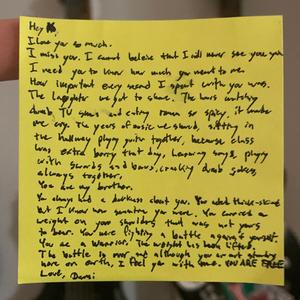 Hey
I love you so much.
I miss you. I cannot believe that I will never see you again
I need you to know how much you meant to me.
How important every second I spent with you was.
The laughter we got to share. The hours watching
dumb TV shows and eating ramen so spicy, it made
me cry. The years of music we shared, sitting in
the hallway playing guitar together, because class
was extra boring that day, learning songs, playing
with swords and bows, cracking dumb jokes,
always together.
You are my brother.
You always had a darkness about you. You acted thick-skinned
but I know how sensitive you were. You carried a
weight on your shoulders that was not yours
to bear. You were fighting a battle against yourself.
You are a warrior. The weight has been lifted.
The battle is over and although you are not standing
here on earth, I feel you with me. YOU ARE FREE
Love,